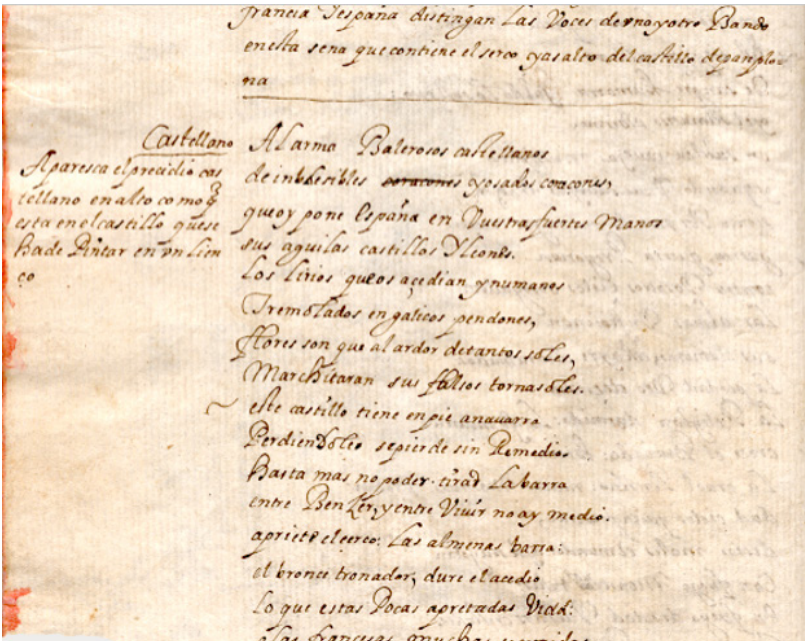 francia Yespaña distingan Las Voces devno yotro Bando
enesta sena que contiene el serco yasalto del castillo depanplo-
na
Castellano
Aparesca el precidio cas
tellano en alto como q̃
esta en el castillo quese
Ha de Pintar en vn Lien
ço
Al arma Balerosos castellanos
de inbensibles coracones yosados coracones,
que oy pone España en Vuestras fuertes Manos
sus aguilas castillos Yleones.
Los lirios que os acedian ynumanos
Tremolados en galicos pendones,
flores son que al ardor de tantos soles,
Marchitaran sus falsos tornasoles.
este castillo tiene en pie anauarra
Perdiendoles sepierde sin Remedio
Hasta mas no poder tirad La barra
entre Benzer, y entre Viuir no ay medio.
apriete el cerco: Las almenas barra:
el bronce tronador, dure el acedio
Lo que estas Pocas apretadas Vidas:
a las francesas muchas